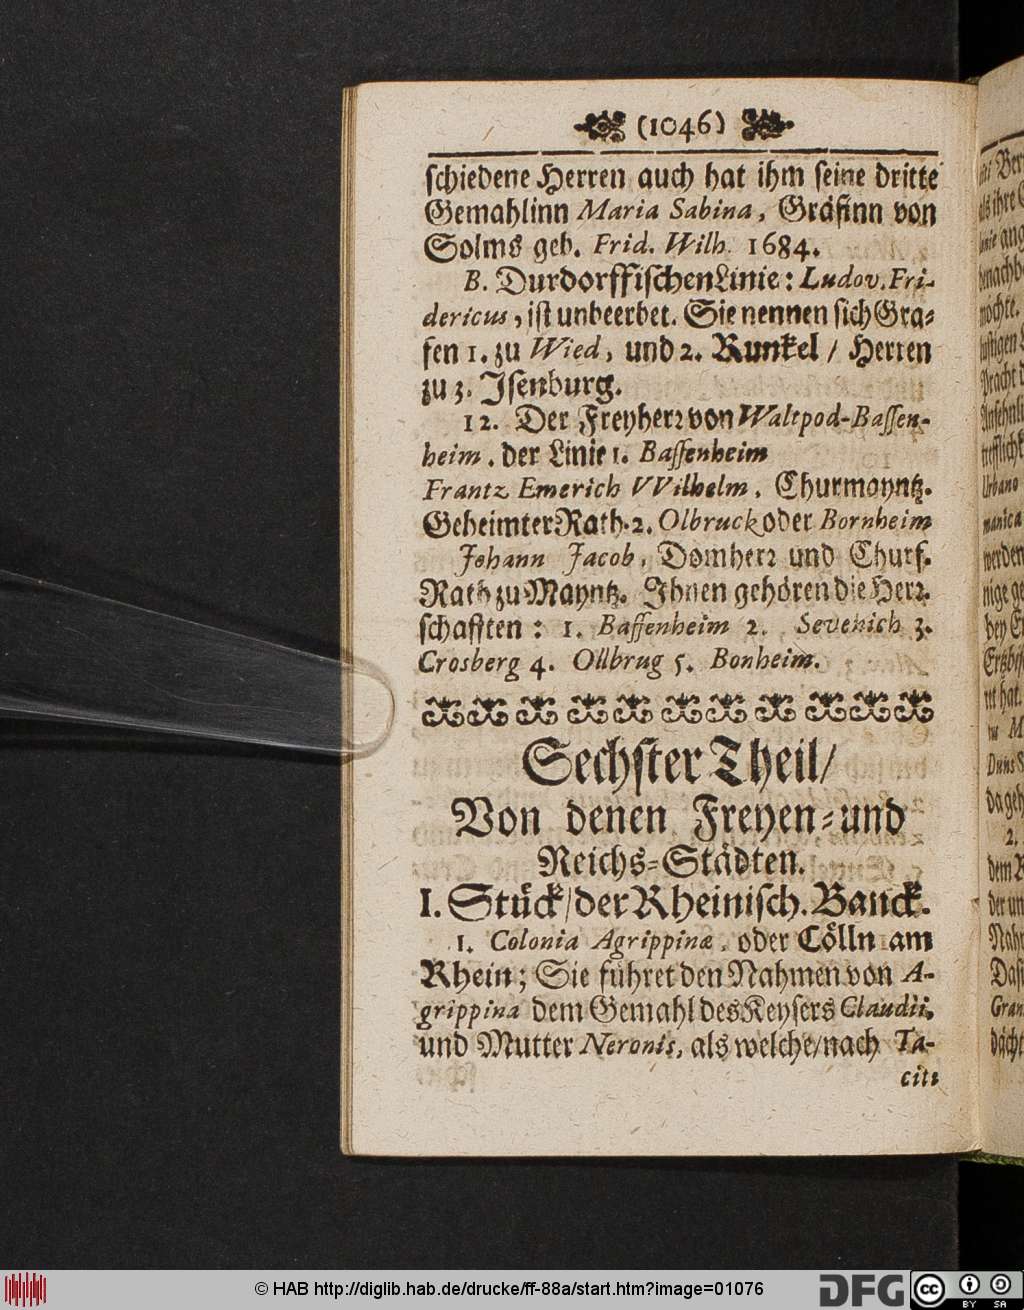 (1046)
schiedene Herren auch hat ihm seine dritte
Gemahlinn Maria Sabina, Gräfinn von
Solms geb. Frid. Wilh. 1684.
B. Durdorffischen Linie: Ludov. Fri-
dericus, ist unbeerbet. Sie nennen sich Gra-
fen 1. zu Wied, und 2. Runkel / Herren
zu 3. Isenburg.
12. Der Freyherr von Waltpod-Bassen-
heim. der Linie 1. Bassenheim
Frantz Emerich VVilhelm. Churmayntz.
Geheimter Rath. 2. Olbruck oder Bornheim
Johann Jacob, Domherr und Churf.
Rath zu Mayntz. Ihnen gehören die Herr-
schafften: 1. Bassenheim 2. Sevenich 3.
Crosberg 4. Ollbrug 5. Bonheim.
Sechster Theil/
Von denen Freyen- und
Reichs-Städten.
I. Stück / der Rheinisch. Banck.
1. Colonia Agrippinæ, oder Cölln am
Rhein; Sie führet den Nahmen von A-
grippina dem Gemahl des Keysers Claudii,
und Mutter Neronis, als welche / nach Ta-
citi
© HAB http://diglib.hab.de/drucke/ff-88a/start.htm?image=01076
DFG
cc BY SA